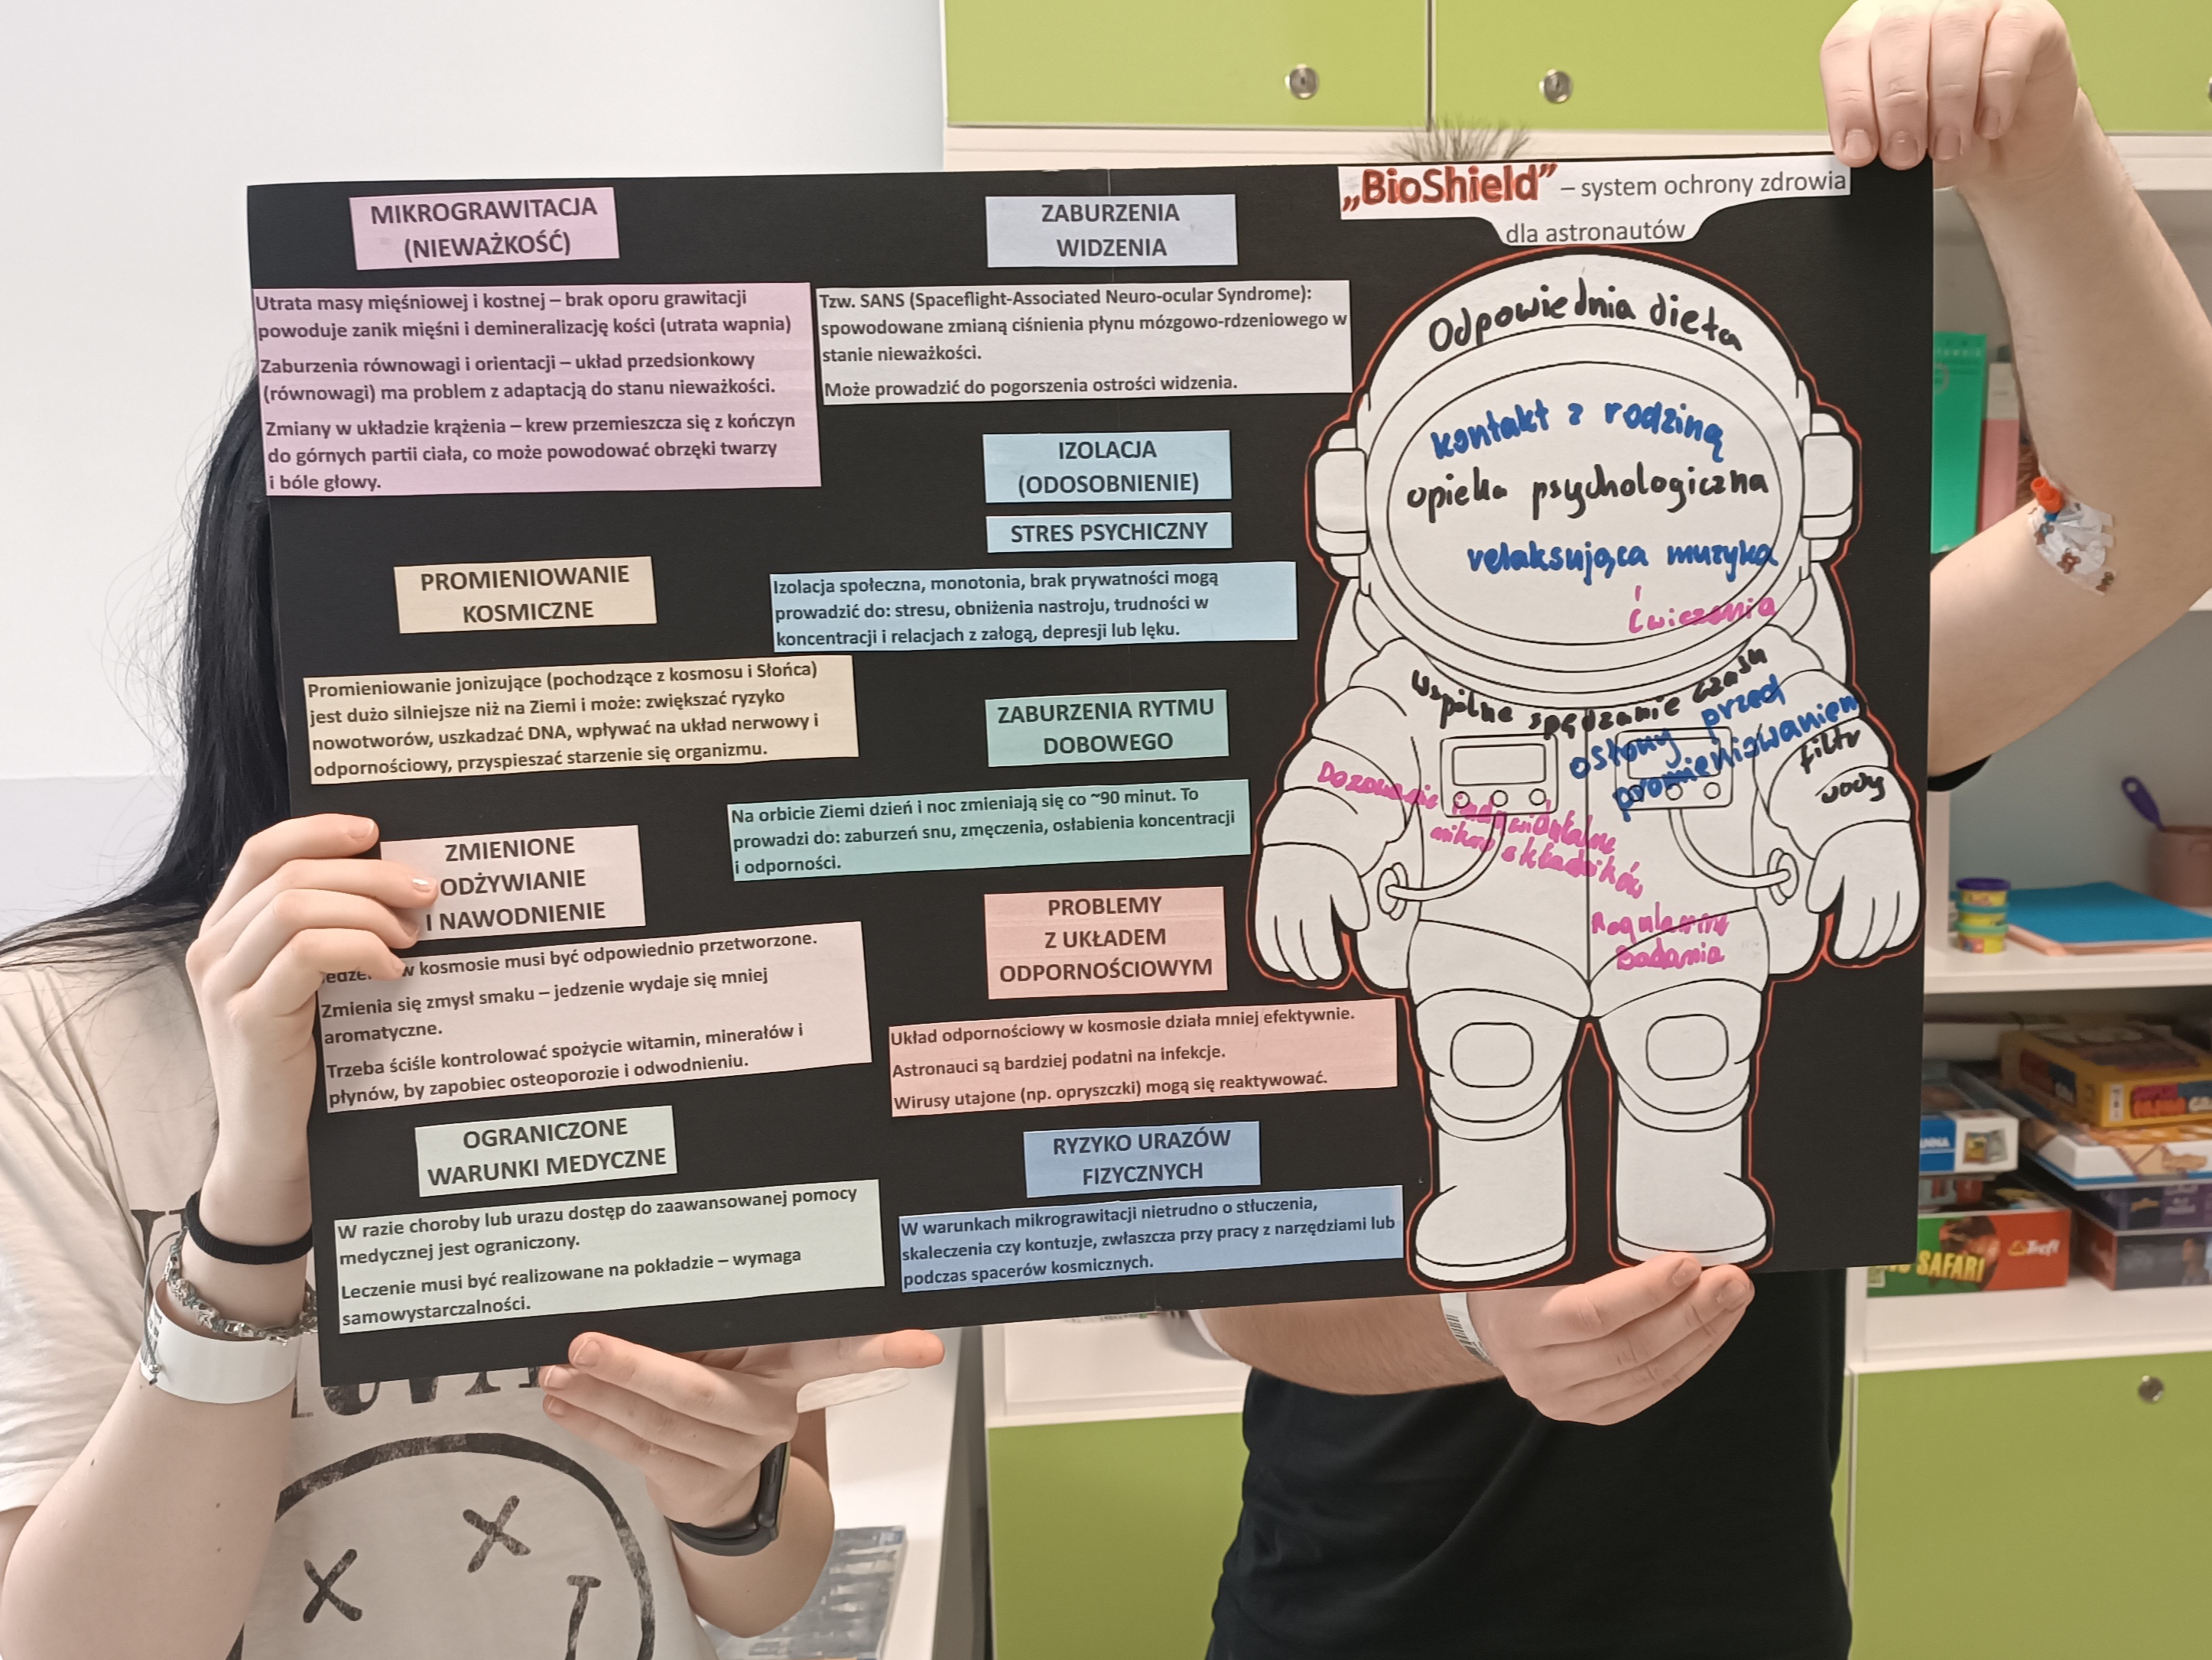 MIKROGRAWITACJA
(NIEWAŻKOŚĆ)
Utrata masy mięśniowej i kostnej – brak oporu grawitacji
powoduje zanik mięśni i demineralizację kości (utrata wapnia)
Zaburzenia równowagi i orientacji – układ przedsionkowy
(równowagi) ma problem z adaptacją do stanu nieważkości.
Zmiany w układzie krążenia – krew przemieszcza się z kończyn
do górnych partii ciała, co może powodować obrzęki twarzy
i bóle głowy.
PROMIENIOWANIE
KOSMICZNE
Promieniowanie jonizujące (pochodzące z kosmosu i Słońca)
jest dużo silniejsze niż na Ziemi i może: zwiększać ryzyko
nowotworów, uszkadzać DNA, wpływać na układ nerwowy i
odpornościowy, przyspieszać starzenie się organizmu.
ZMIENIONE
ODŻYWIANIE
I NAWODNIENIE
w kosmosie musi być odpowiednio przetworzone.
Zmienia się zmysł smaku – jedzenie wydaje się mniej
aromatyczne.
Trzeba ściśle kontrolować spożycie witamin, minerałów i
płynów, by zapobiec osteoporozie i odwodnieniu.
OGRANICZONE
WARUNKI MEDYCZNE
W razie choroby lub urazu dostęp do zaawansowanej pomocy
medycznej jest ograniczony.
Leczenie musi być realizowane na pokładzie – wymaga
samowystarczalności.
ZABURZENIA
WIDZENIA
Tzw. SANS (Spaceflight-Associated Neuro-ocular Syndrome):
spowodowane zmianą ciśnienia płynu mózgowo-rdzeniowego w
stanie nieważkości.
Może prowadzić do pogorszenia ostrości widzenia.
IZOLACJA
(ODOSOBNIENIE)
STRES PSYCHICZNY
Izolacja społeczna, monotonia, brak prywatności mogą
prowadzić do: stresu, obniżenia nastroju, trudności w
koncentracji i relacjach z załogą, depresji lub lęku.
ZABURZENIA RYTMU
DOBOWEGO
Na orbicie Ziemi dzień i noc zmieniają się co ~90 minut. To
prowadzi do: zaburzeń snu, zmęczenia, osłabienia koncentracji
i odporności.
PROBLEMY
Z UKŁADEM
ODPORNOŚCIOWYM
Układ odpornościowy w kosmosie działa mniej efektywnie.
Astronauci są bardziej podatni na infekcje.
Wirusy utajone (np. opryszczki) mogą się reaktywować.
RYZYKO URAZÓW
FIZYCZNYCH
W warunkach mikrograwitacji nietrudno o stłuczenia,
skaleczenia czy kontuzje, zwłaszcza przy pracy z narzędziami lub
podczas spacerów kosmicznych.
„BioShield” – system ochrony zdrowia
dla astronautów
Odpowiednia dieta
kontakt z rodziną
opieka psychologiczna
relaksująca muzyka
Ćwiczenia
wspólne spędzanie czasu
osłony przed
promieniowaniem
filtr
wody
Dozowanie indywidualne
mikroskładników
Regularne
Badania
SAFARI
Trefl